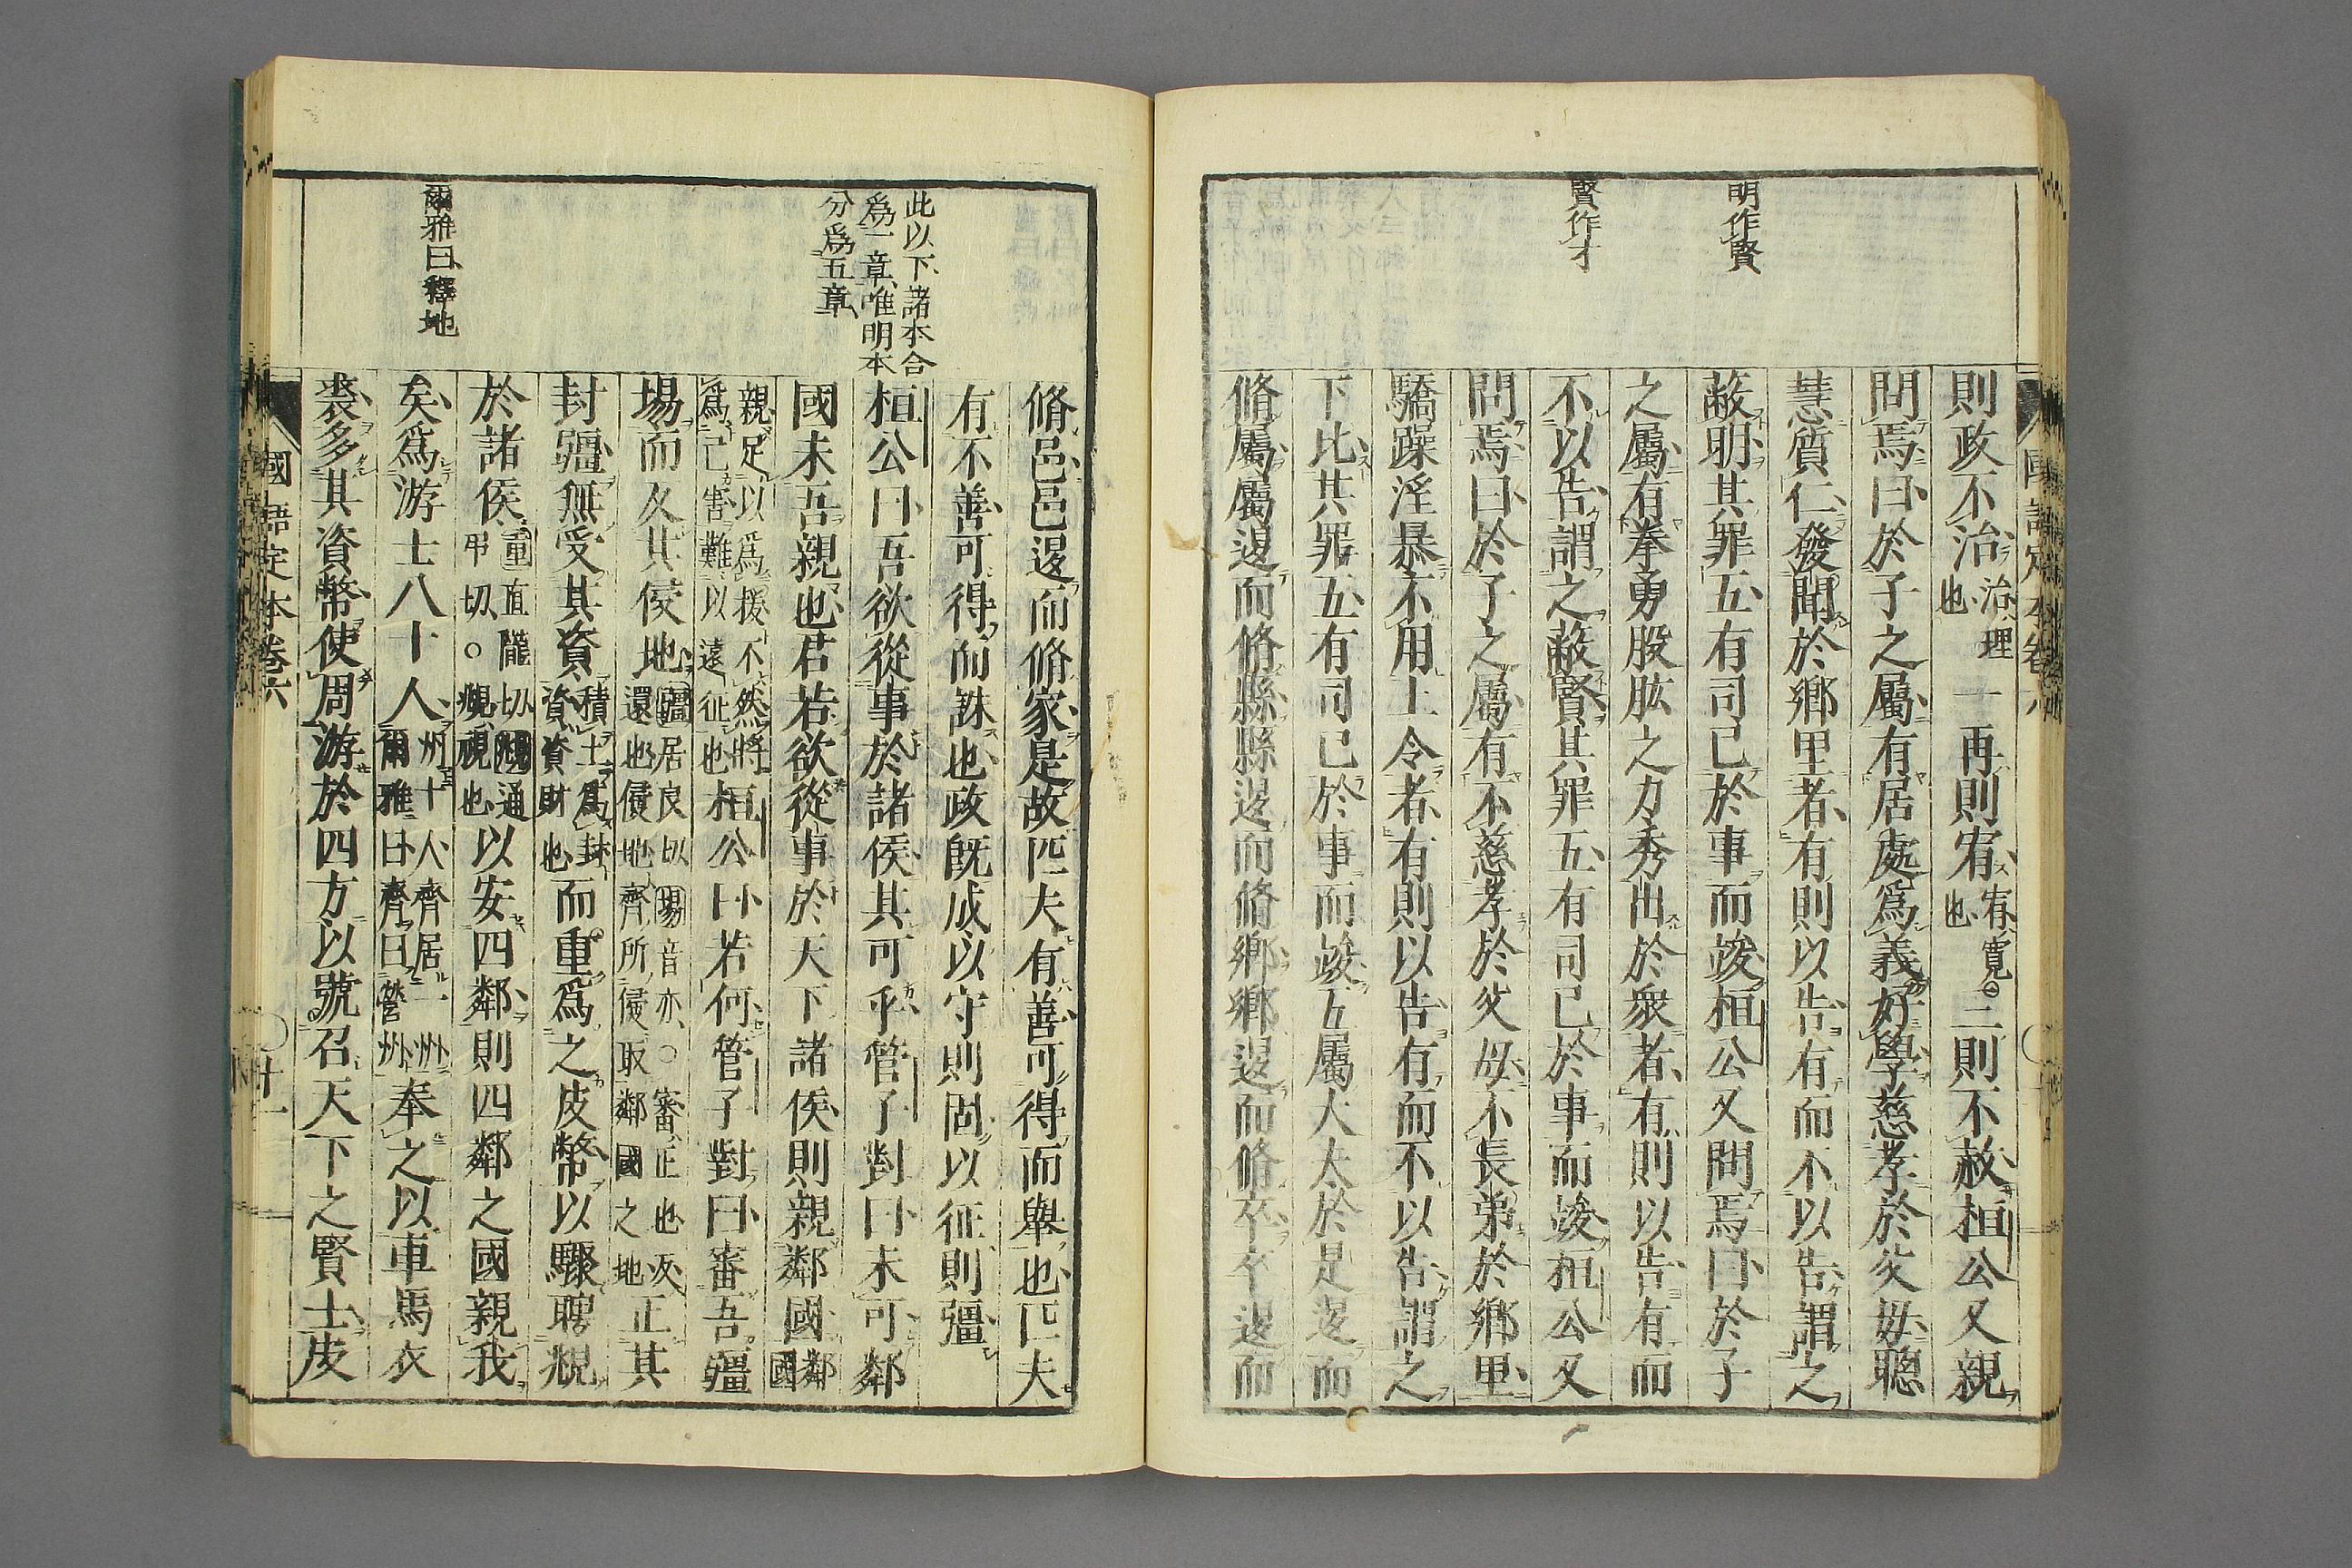 明作賢
賢作才
則政不治治理也一再則宥宥寬也三則不赦桓公又親
問焉曰於子之屬有居處爲義好學慈孝於父母聰
慧質仁發聞於鄉里者有則以告有而不以告謂之
蔽明其罪五有司已於事而竣桓公又問焉曰於子
之屬有拳勇股肱之力秀出於衆者有則以告有而
不以告謂之蔽賢其罪五有司已於事而竣桓公又
問焉曰於子之屬有不慈孝於父母不長弟於鄉里
驕躁淫暴不用上令者有則以告有而不以告謂之
下比其罪五有司已於事而竣五屬大夫於是退而
脩屬屬退而脩縣縣退而脩鄉鄉退而脩卒卒退而
此以下諸本合
爲一章唯明本
分爲五章
爾雅曰釋地
脩邑邑退而脩家是故匹夫有善可得而舉也匹夫
有不善可得而誅也政既成以守則固以征則彊
桓公曰吾欲從事於諸侯其可乎管子對曰未可鄰
國未吾親也君若欲從事於天下諸侯則親鄰國鄰國
親足以爲援不然將爲己害難以遠征也桓公曰若何管子對曰審吾疆
場而反其侵地疆居良切場音亦○審正也反還也侵地齊所侵取鄰國之地正其
封疆無受其資積土爲封資資財也而重爲之皮幣以驟聘覜
於諸侯重直隴切覜通弔切○覜視也以安四鄰則四鄰之國親我
矣爲游士八十人州十人齊居一州爾雅曰齊曰營州奉之以車馬衣
裘多其資幣使周游於四方以號召天下之賢士皮
國語定本卷六
十一